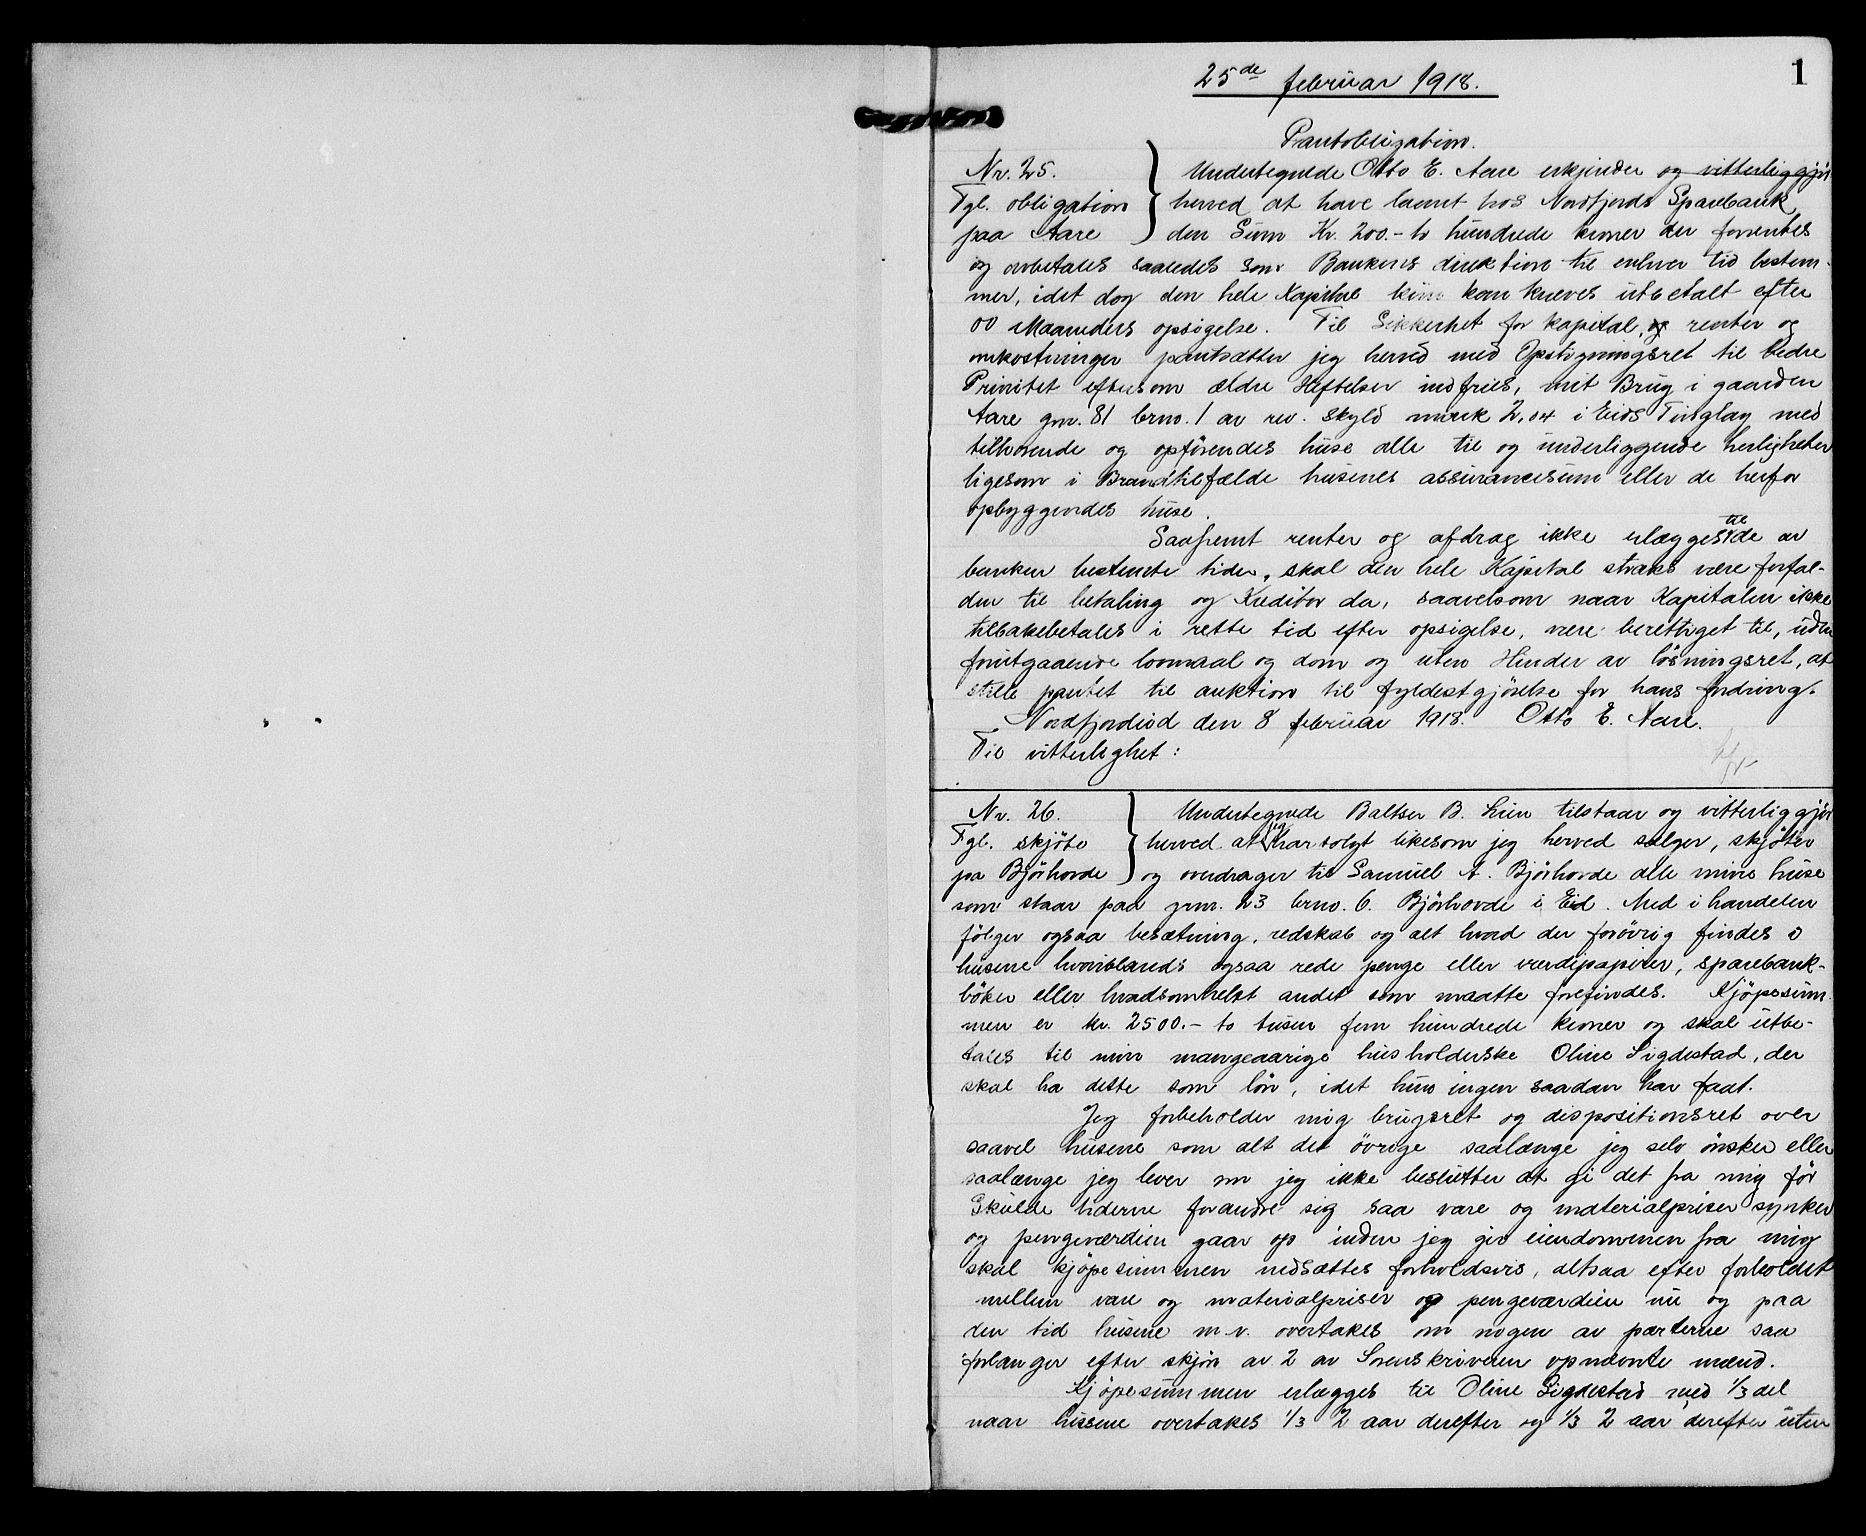 1
25de februar 1918.
Pantobligation.
Nr. 25.
Tgl. obligation
paa Aare
Undertegnede Otto E. Aare erkjender og vitterliggjör
herved at have laant hos Nordfjords Sparebank
den Sum Kr. 200.- to hundrede kroner der forrentes
og avbetales saaledes som Bankens direktion til enhver tid bestem-
mer, idet dog den hele Kapital kan kræves utbetalt efter
Maaneders opsigelse. Til Sikkerhet for kapital, og renter og
omkostninger pantsætter jeg herved med Opstigningsret til bedre
Prioritet eftersom ældre Heftelser indfries, mit Brug i gaarden
Aare gnr. 81 brno. 1 av rev. skyld mark 2,04 i Eids Tinglag med
tilhörende og opförendes huse alle til og underliggende herligheter
ligesom i Brandtilfælde husenes assurancesum eller de herfor
opbyggendes huse.
Saafremt renter og afdrag ikke erlægges til de av
banken bestemte tider, skal den hele Kapital straks være forfal-
den til betaling og Kreditor da, saavelsom naar Kapitalen ikke
tilbakebetales i rette tid efter opsigelse, være berettiget til, uden
forutgaaende lovmaal og dom og uten Hinder av lösningsret, at
stille pantet til auktion til fyldestgjörelse for hans fordring.
Nordfjordeid den 8 februar 1918. Otto E. Aare.
Til vitterlighet:
Nr. 26.
Tgl. skjöte
pa Björhovde
Undertegnede Baltser B. Lien tilstaar og vitterliggjör
herved at jeg har solgt likesom jeg herved sælger, skjöter
og overdrager til Samuel A. Björhovde alle mine huse
som staar paa gnr. 23 brno. 6. Björhovde i Eid. Med i handelen
fölger ogsaa besætning, redskab og alt hvad der forövrig findes i
husene hvoriblandt ogsaa rede penge eller værdipapirer, sparebank-
böker eller hvadsomhelst andet som maatte forefindes. Kjöpesum-
men er kr. 2500.- to tusen fem hundrede kroner og skal utbe-
tales til min mangeaarige husholderske Oline Sigdestad, der
skal ha dette som lön, idet hun ingen saadan har faat.
Jeg forbeholder mig brugsret og dispositionsret over
saavel husene som alt det övrige saalænge jeg selv önsker eller
saalænge jeg lever om jeg ikke beslutter at gi det fra mig för
Skulde tiderne forandre sig saa vare og materialpriser synker
og pengeværdien gaar op inden jeg gir eiendommen fra mig
skal kjöpesummen nedsættes forholdsvis, altsaa efter forholdet
mellem vare og materialpriser og pengeværdien nu og paa
den tid husene m.v. overtakes om nogen av parterne saa
forlanger efter skjön av 2 av Sorenskriveren opnævnte mænd.
Kjöpesummen erlægges til Oline Sigdestad med 1/3 del
naar husene overtakes 1/3 2 aar derefter og 1/3 2 aar derefter uten